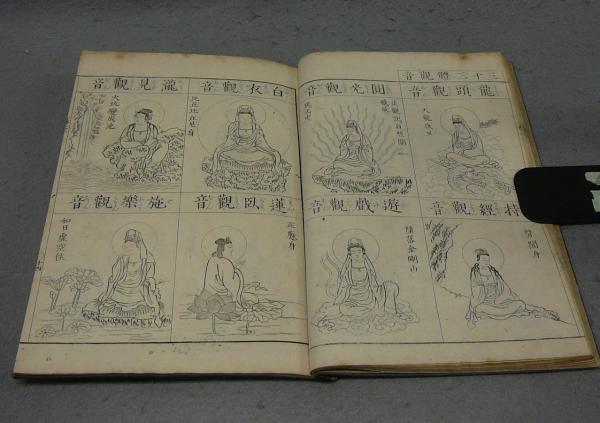 三十三體觀音
龍頭觀音
天龍夜叉
圓光觀音
持經觀音
聲聞身
遊戲觀音
墮落金剛山
白衣觀音
比丘比丘尼身
瀧見觀音
火坑變成池
蓮臥觀音
施樂觀音
如日虛空住